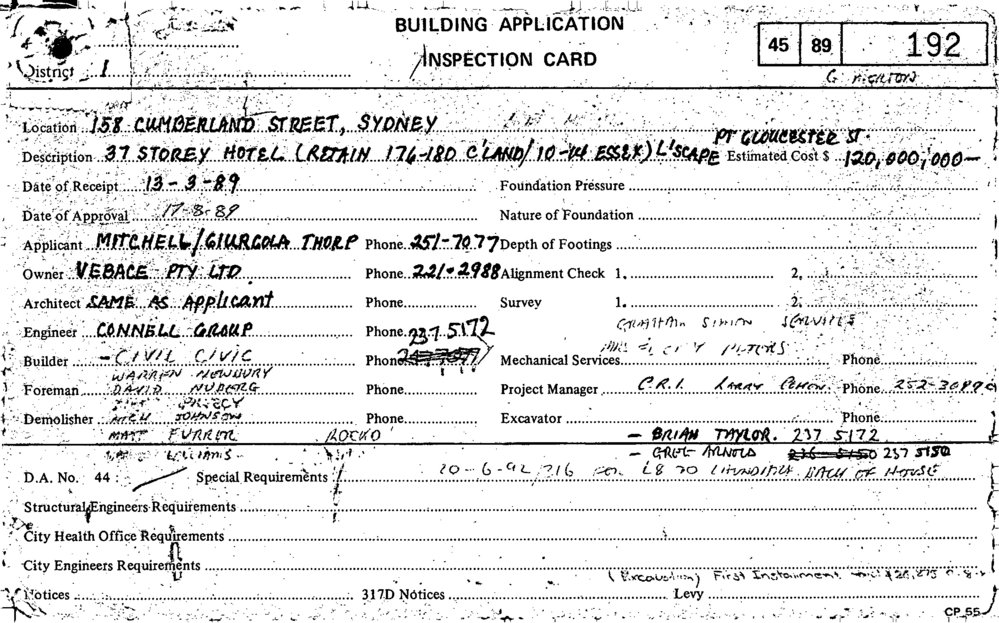 BUILDING APPLICATION
INSPECTION CARD
45 89 192
District 1
Location 158 CUMBERLAND STREET, SYDNEY
PT GLOUCESTER ST.
Description 37 STOREY HOTEL (RETAIN 176-180 C'LAND/10-14 ESSEX) L'SCAPE Estimated Cost $ 120,000,000—
Date of Receipt 13-3-89 Foundation Pressure
Date of Approval 17-8-89 Nature of Foundation
Applicant MITCHELL/GIURGOLA THORP Phone 251-7077 Depth of Footings
Owner VEBACE PTY LTD Phone 221-2988 Alignment Check 1. 2.
Architect SAME AS Applicant Phone Survey 1. 2.
Engineer CONNELL GROUP Phone 237 5172
Builder - CIVIL CIVIC Phone Mechanical Services Phone
WARREN NEWBURY
Foreman DAVID Phone Project Manager C.R.I. LARRY Phone
Demolisher JOHNSON Phone Excavator Phone
MATT FURRER ROCKO - BRIAN TAYLOR. 237 5172
WILLIAMS - GREG ARNOLD 237 5150
D.A. No. 44: Special Requirements 20-6-92 BACK OF HOUSE
Structural Engineers Requirements
City Health Office Requirements
City Engineers Requirements
(Excavation) First Instalment
Notices 317D Notices Levy
CP 55